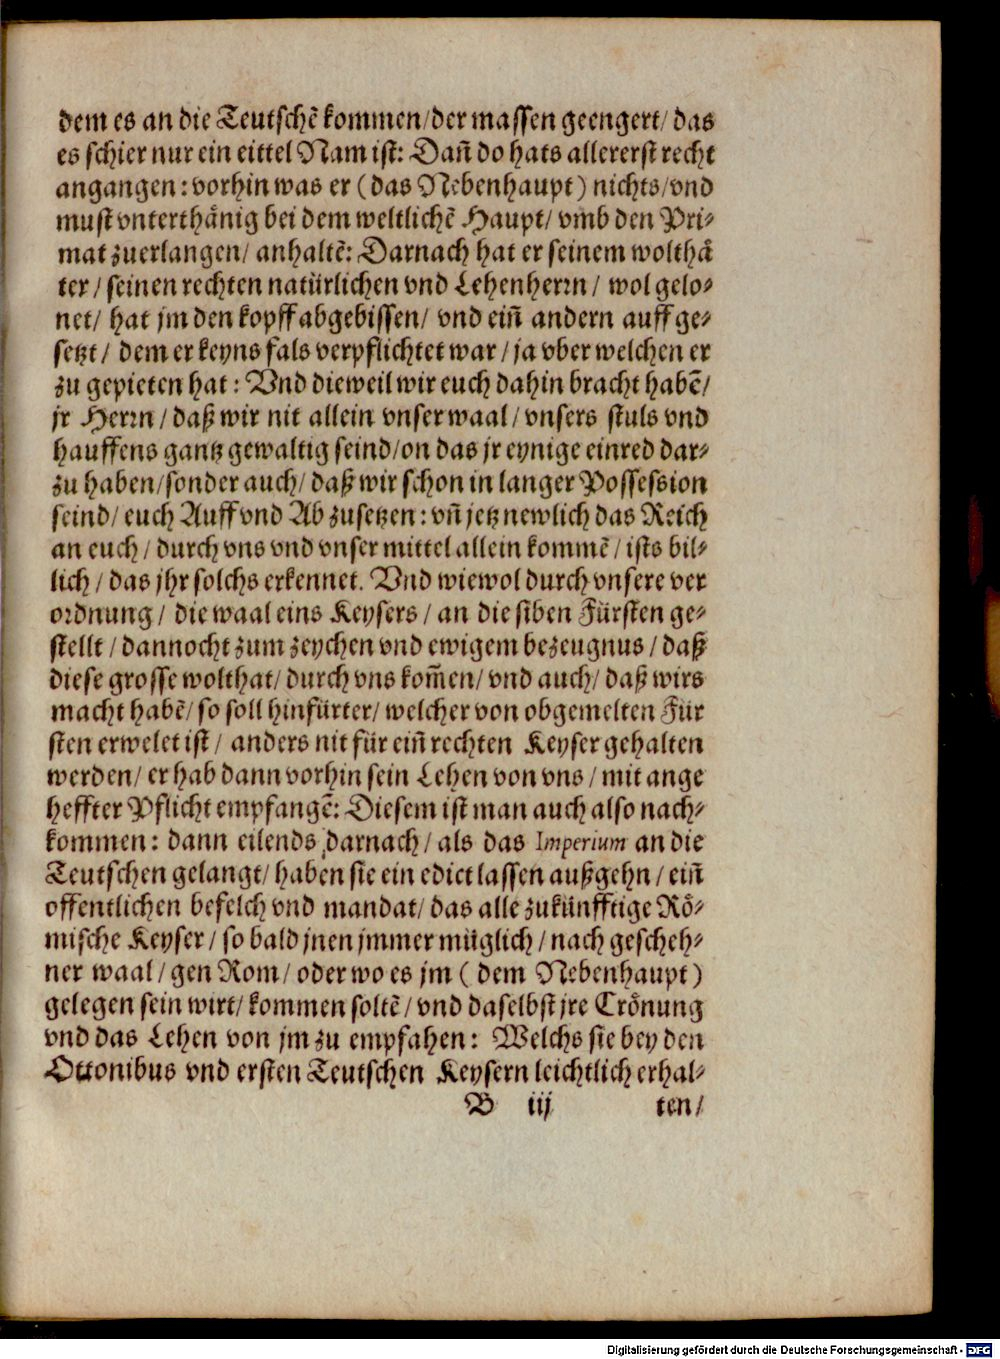 dem es an die Teutschẽ kommen/der massen geengert/ das
es schier nur ein eittel Nam ist: Dañ do hats allererst recht
angangen: vorhin was er (das Nebenhaupt) nichts/vnd
must vnterthånig bei dem weltlichẽ Haupt/ vm̃b den Pri-
mat zuerlangen/ anhaltẽ: Darnach hat er seinem wolthå
ter/ seinen rechten natürlichen vnd Lehenherrn/ wol gelo-
net/ hat jm den kopff abgebissen/ vnd eiñ andern auff ge-
setzt/ dem er keyns fals verpflichtet war/ ja vber welchen er
zu gepieten hat: Vnd dieweil wir euch dahin bracht habẽ/
jr Herrn/ daß wir nit allein vnser waal/ vnsers stuls vnd
hauffens gantz gewaltig seind/on das jr eynige einred dar-
zu haben/sonder auch/ daß wir schon in langer Possession
seind/ euch Auff vnd Ab zusetzen: vñ jetz newlich das Reich
an euch/ durch vns vnd vnser mittel allein kommẽ/ ists bil-
lich/ das jhr solchs erkennet. Vnd wiewol durch vnsere ver
ordnung/ die waal eins Keysers/ an die siben Fürsten ge-
stellt/ dannocht zum zeychen vnd ewigem bezeugnus/ daß
diese grosse wolthat/ durch vns kom̃en/ vnd auch/ daß wirs
macht habẽ/ so soll hinfürter/ welcher von obgemelten Für
sten erwelet ist/ anders nit für eiñ rechten Keyser gehalten
werden/ er hab dann vorhin sein Lehen von vns/ mit ange
heffter Pflicht empfangẽ: Diesem ist man auch also nach-
kommen: dann eilends darnach/ als das Imperium an die
Teutschen gelangt/ haben sie ein edict lassen außgehn/ eiñ
offentlichen befelch vnd mandat/ das alle zukünfftige Rö-
mische Keyser/ so bald jnen jmmer müglich/ nach gescheh-
ner waal/ gen Rom/ oder wo es jm (dem Nebenhaupt)
gelegen sein wirt/ kommen soltẽ/ vnd daselbst jre Crönung
vnd das Lehen von jm zu empfahen: Welchs sie bey den
Ottonibus vnd ersten Teutschen Keysern leichtlich erhal-
B iij ten/
Digitalisierung gefördert durch die Deutsche Forschungsgemeinschaft - DFG